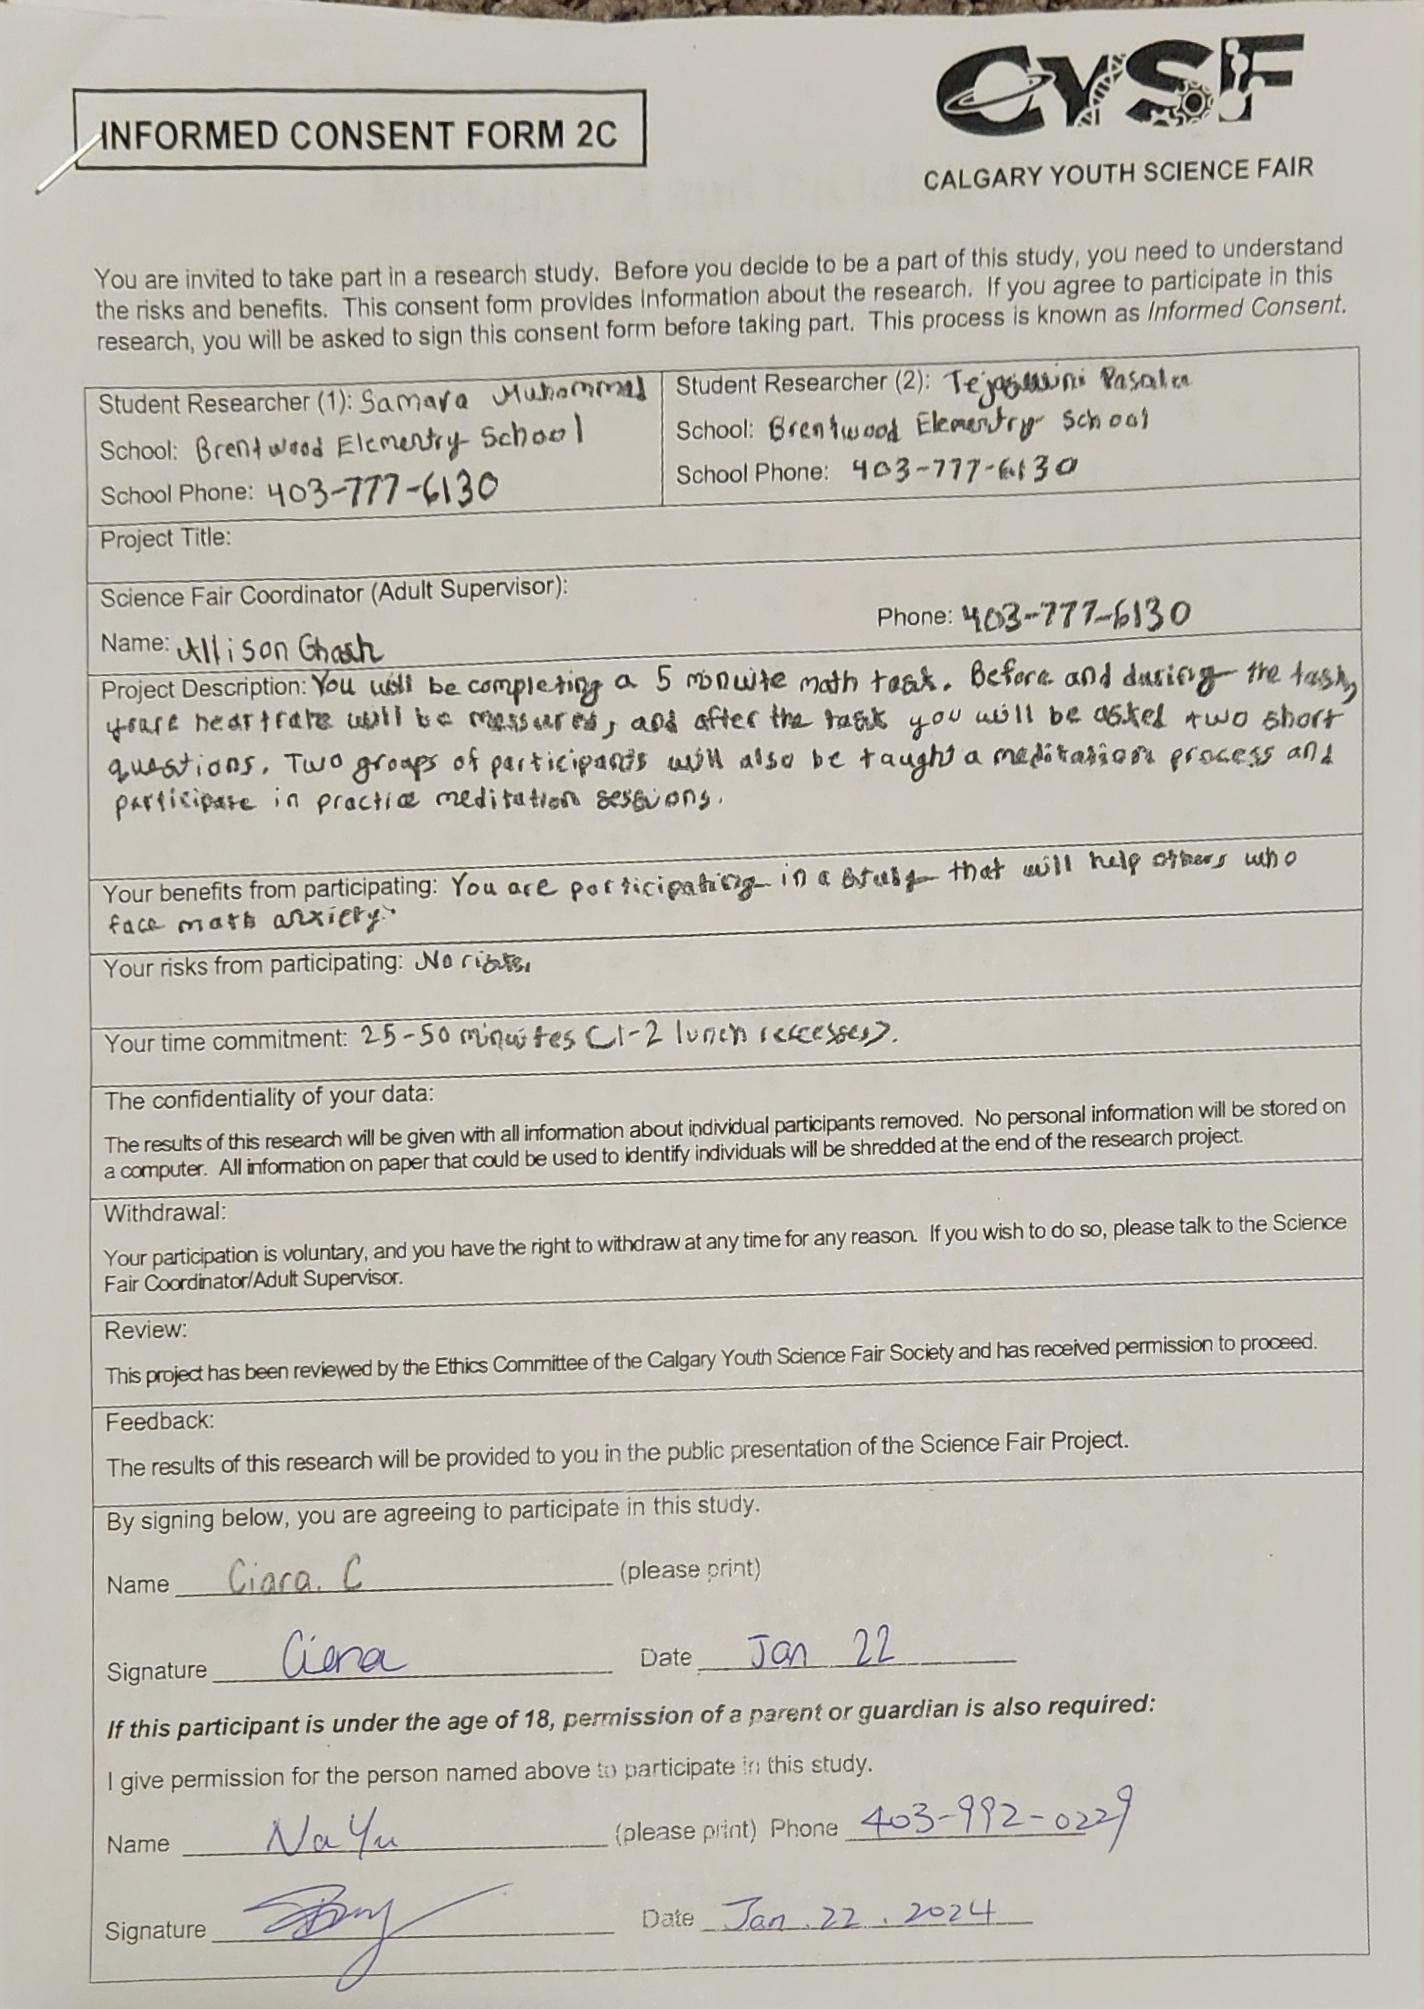 INFORMED CONSENT FORM 2C
CYSF
CALGARY YOUTH SCIENCE FAIR
You are invited to take part in a research study. Before you decide to be a part of this study, you need to understand
the risks and benefits. This consent form provides information about the research. If you agree to participate in this
research, you will be asked to sign this consent form before taking part. This process is known as Informed Consent.
Student Researcher (1): Samara Muhammad
School: Brentwood Elementry School
School Phone: 403-777-6130
Student Researcher (2): Tejaswini
School: Brentwood Elementry School
School Phone: 403-777-6130
Project Title:
Science Fair Coordinator (Adult Supervisor):
Name: Allison Ghosh
Phone: 403-777-6130
Project Description: You will be completing a 5 minute math task. Before and during the task,
heartrate will be messured, and after the task you will be asked two short
questions. Two groups of participants will also be taught a meditation process and
participate in practice meditation sessions.
Your benefits from participating: You are participating in a study that will help others who
face math anxiety.
Your risks from participating: No risks.
Your time commitment: 25-50 minutes (1-2 lunch recesses).
The confidentiality of your data:
The results of this research will be given with all information about individual participants removed. No personal information will be stored on
a computer. All information on paper that could be used to identify individuals will be shredded at the end of the research project.
Withdrawal:
Your participation is voluntary, and you have the right to withdraw at any time for any reason. If you wish to do so, please talk to the Science
Fair Coordinator/Adult Supervisor.
Review:
This project has been reviewed by the Ethics Committee of the Calgary Youth Science Fair Society and has received permission to proceed.
Feedback:
The results of this research will be provided to you in the public presentation of the Science Fair Project.
By signing below, you are agreeing to participate in this study.
Name Ciara. C (please print)
Signature Ciara Date Jan 22
If this participant is under the age of 18, permission of a parent or guardian is also required:
I give permission for the person named above to participate in this study.
Name Na Yu (please print) Phone 403-992-0229
Signature Date Jan. 22. 2024